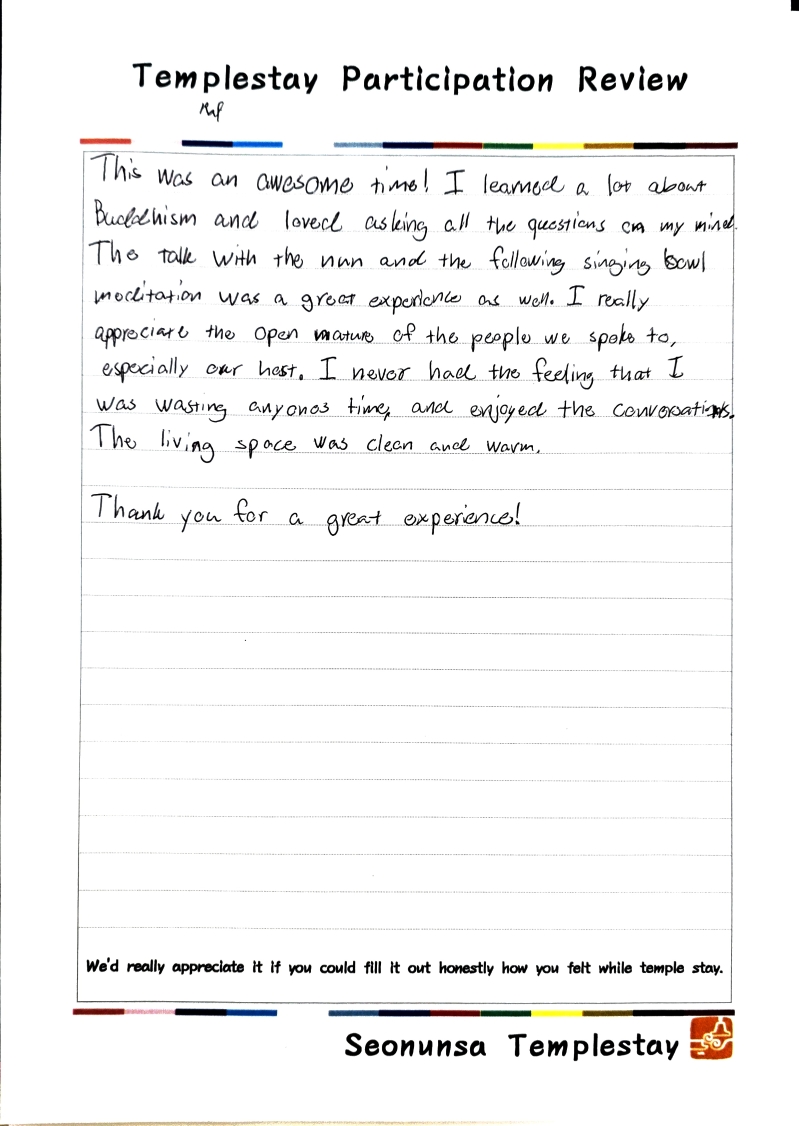 Templestay Participation Review
This was an awesome time! I learned a lot about
Buddhism and loved asking all the questions on my mind.
The talk with the nun and the following singing bowl
meditation was a great experience as well. I really
appreciate the open nature of the people we spoke to,
especially our host. I never had the feeling that I
was wasting anyones time, and enjoyed the conversations.
The living space was clean and warm.
Thank you for a great experience!
We'd really appreciate it if you could fill it out honestly how you felt while temple stay.
Seonunsa Templestay